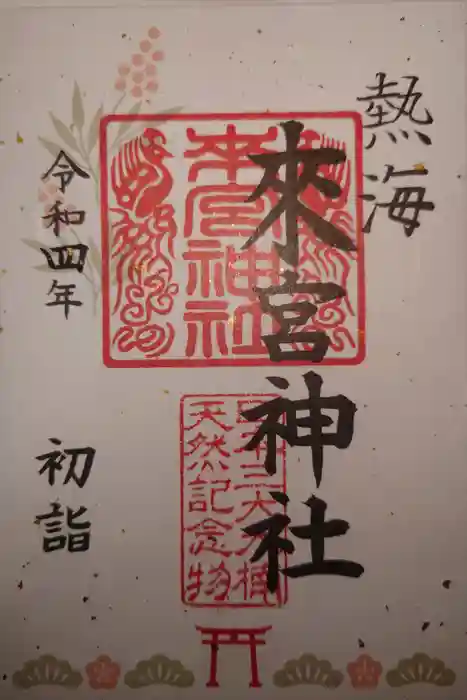 熱海
來宮神社
令和四年
初詣
來宮神社
日本三大
天然記念物